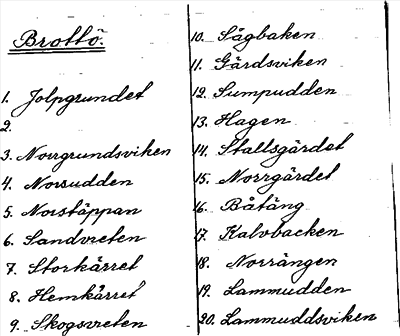 Brottö.
1. Jolpgrundet
2.
3. Norrgrundsviken
4. Norsudden
5. Norstäppan
6. Sandvreten
7. Storkärret
8. Hemkärret
9. Skogsvreten
10. Sågbaken
11. Gårdsviken
12. Sumpudden
13. Hagen
14. Stallsgärdet
15. Norrgärdet
16. Båtäng
17. Kalvbacken
18. Norrängen
19. Lammudden
20. Lammuddsviken